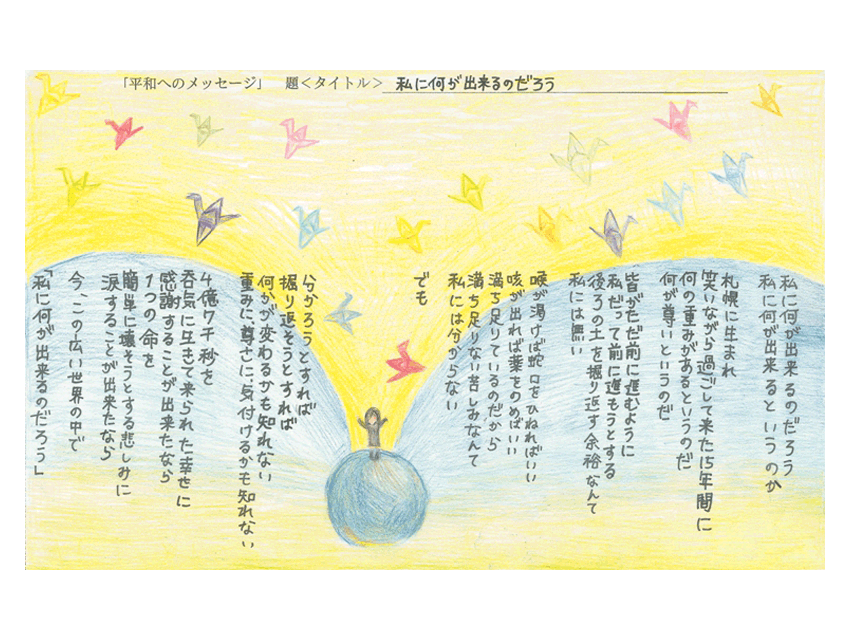 「平和へのメッセージ」 題＜タイトル＞ 私に何が出来るのだろう
私に何が出来るのだろう
私に何が出来るというのか
札幌に生まれ
笑いながら過ごして来た15年間に
何の重みがあるというのだ
何が尊いというのだ
皆がただ前に進むように
私だって前に進もうとする
後ろの土を掘り返す余裕なんて
私には無い
喉が渇けば蛇口をひねればいい
咳が出れば薬をのめばいい
満ち足りているのだから
満ち足りない苦しみなんて
私には分からない
でも
分かろうとすれば
掘り返そうとすれば
何かが変わるかも知れない
重みに、尊さに、気付けるかも知れない
4億7千秒を
呑気に生きて来られた幸せに
感謝することが出来たなら
1つの命を
簡単に壊そうとする悲しみに
涙することが出来たなら
今、この広い世界の中で
「私に何が出来るのだろう」